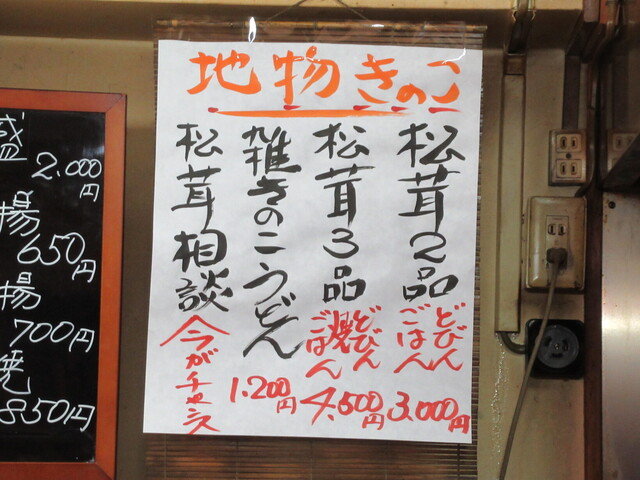 地物きのこ
松茸2品
どびん
ごはん
3.000円
松茸3品
どびん
ごはん
4.500円
雑きのこうどん
1.200円
松茸相談
今がチャンス
盛
2.000円
揚
650円
揚
700円
焼
850円